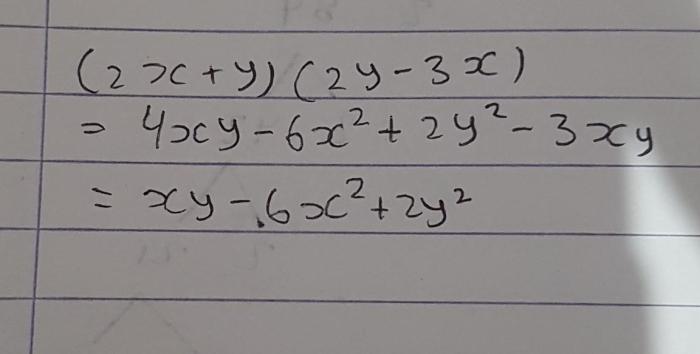 (2x+y)(2y-3x)
= 4xy-6x²+2y²-3xy
= xy-6x²+2y²